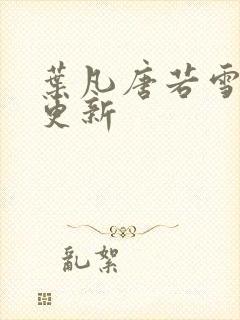 葉凡唐若雪
更新
亂絮